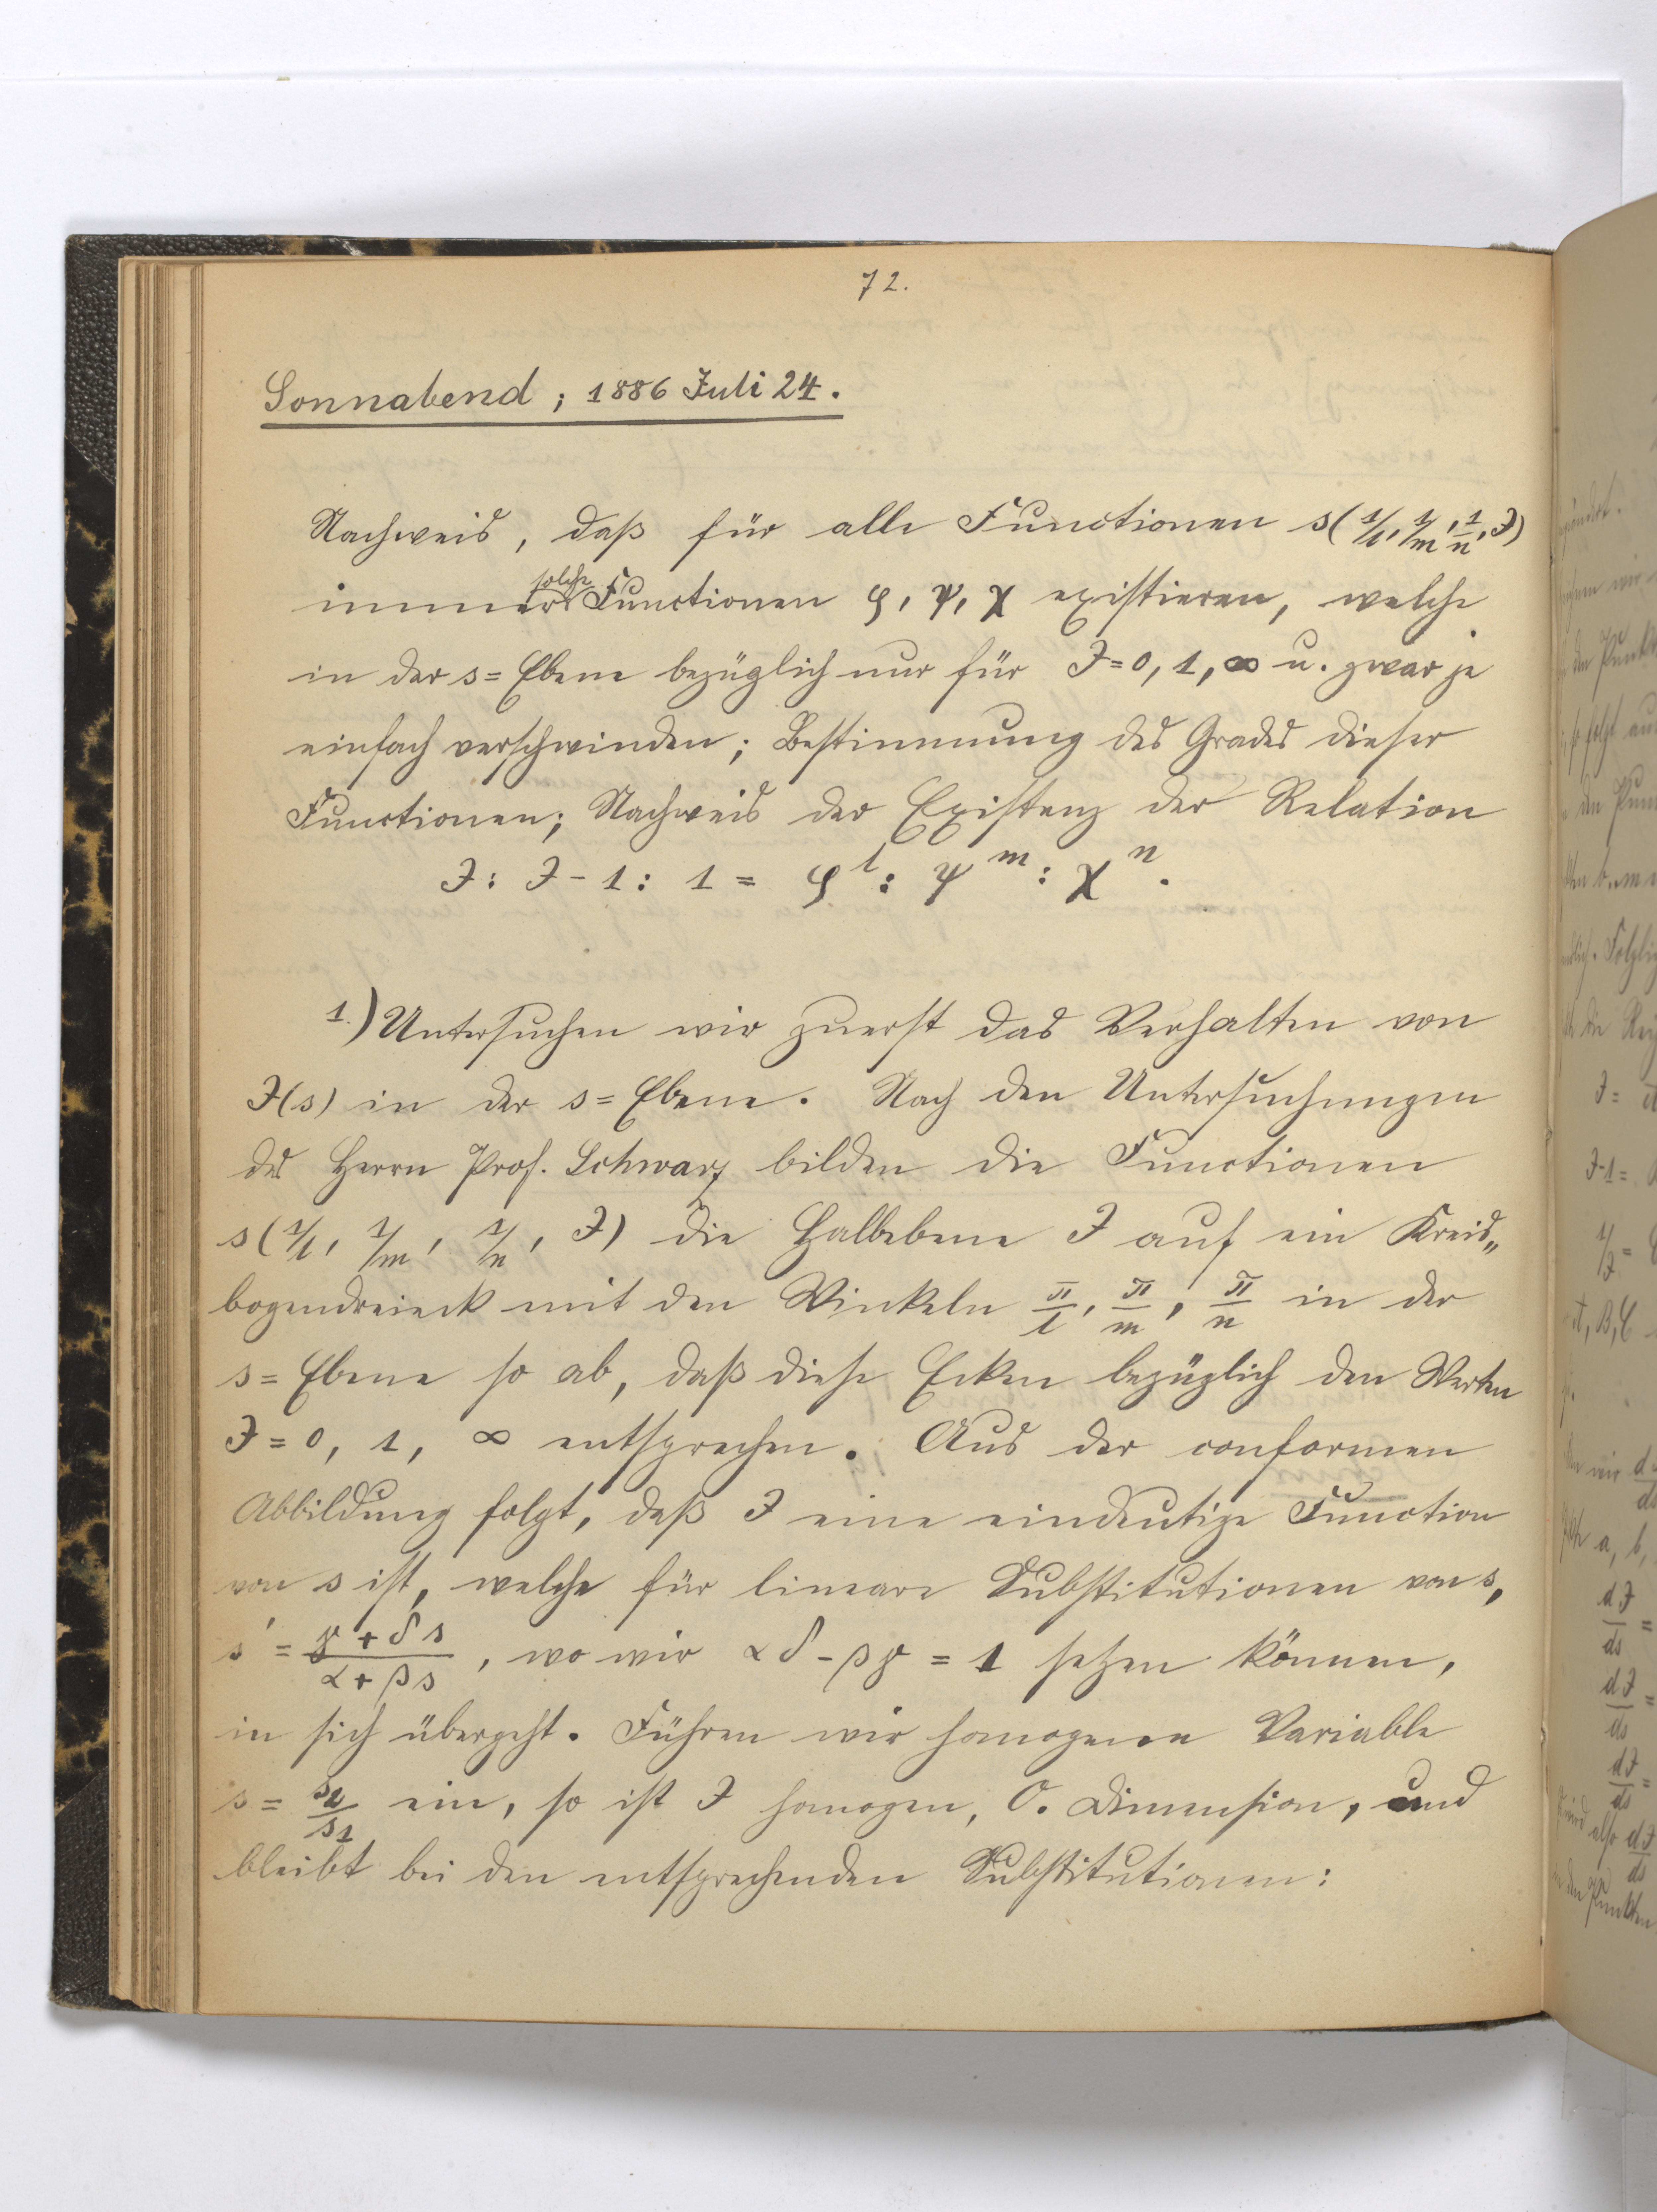 72.
Sonnabend; 1886 Juli 24.
Nachweis, daß für alle Functionen s(1/l, 1/m, 1/n, J)
solche
immer Functionen φ, ψ, χ existieren, welche
in der s=Ebene bezüglich nur für J=0, 1, ∞ u. zwar je
einfach verschwinden; Bestimmung des Grades dieser
Functionen; Nachweis der Existenz der Relation
J : J-1 : 1 = φ^l : ψ^m : χ^n.
1.) Untersuchen wir zuerst das Verhalten von
J(s) in der s=Ebene. Nach den Untersuchungen
des Herrn Prof. Schwarz bilden die Functionen
s(1/l, 1/m, 1/n, J) die Halbebene J auf ein Kreis„
bogendreieck mit den Winkeln π/l, π/m, π/n in der
s=Ebene so ab, daß diese Ecken bezüglich den Werten
J=0, 1, ∞ entsprechen. Aus der conformen
Abbildung folgt, daß J eine eindeutige Function
von s ist, welche für lineare Substitutionen von s,
s' = (γ+δs)/(α+βs), wo wir αδ-βγ=1 setzen können,
in sich übergeht. Führen wir homogene Variable
s = s2/s1 ein, so ist J homogen, 0. Dimension, und
bleibt bei den entsprechenden Substitutionen: